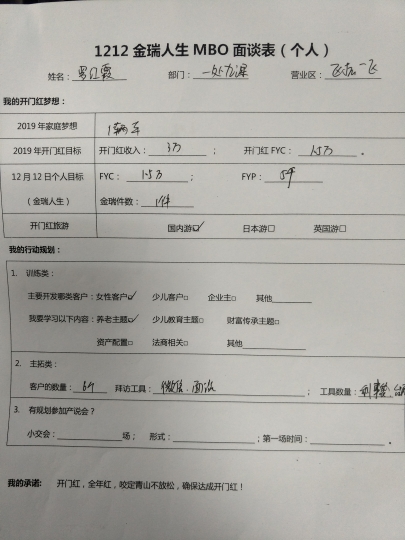 1212 金瑞人生 MBO 面谈表（个人）
姓名： 部门：一处九课 营业区：飞
我的开门红梦想：
2019 年家庭梦想 1辆车
2019 年开门红目标 开门红收入：3万； 开门红 FYC：1.5万。
12 月 12 日个人目标 FYC：1.5万； FYP：5件
（金瑞人生） 金瑞件数：1件
开门红旅游 国内游☑ 日本游□ 英国游□
我的行动规划：
1. 训练类：
主要开发哪类客户：女性客户☑ 少儿客户□ 企业主□ 其他
我要学习以下内容：养老主题☑ 少儿教育主题□ 财富传承主题□
资产配置□ 法商相关□ 其他
2. 主拓类：
客户的数量： 拜访工具：微信、面谈； 工具数量：
3. 有规划参加产说会？
小交会：场； 形式：；第一场时间：.
我的承诺： 开门红，全年红，咬定青山不放松，确保达成开门红！